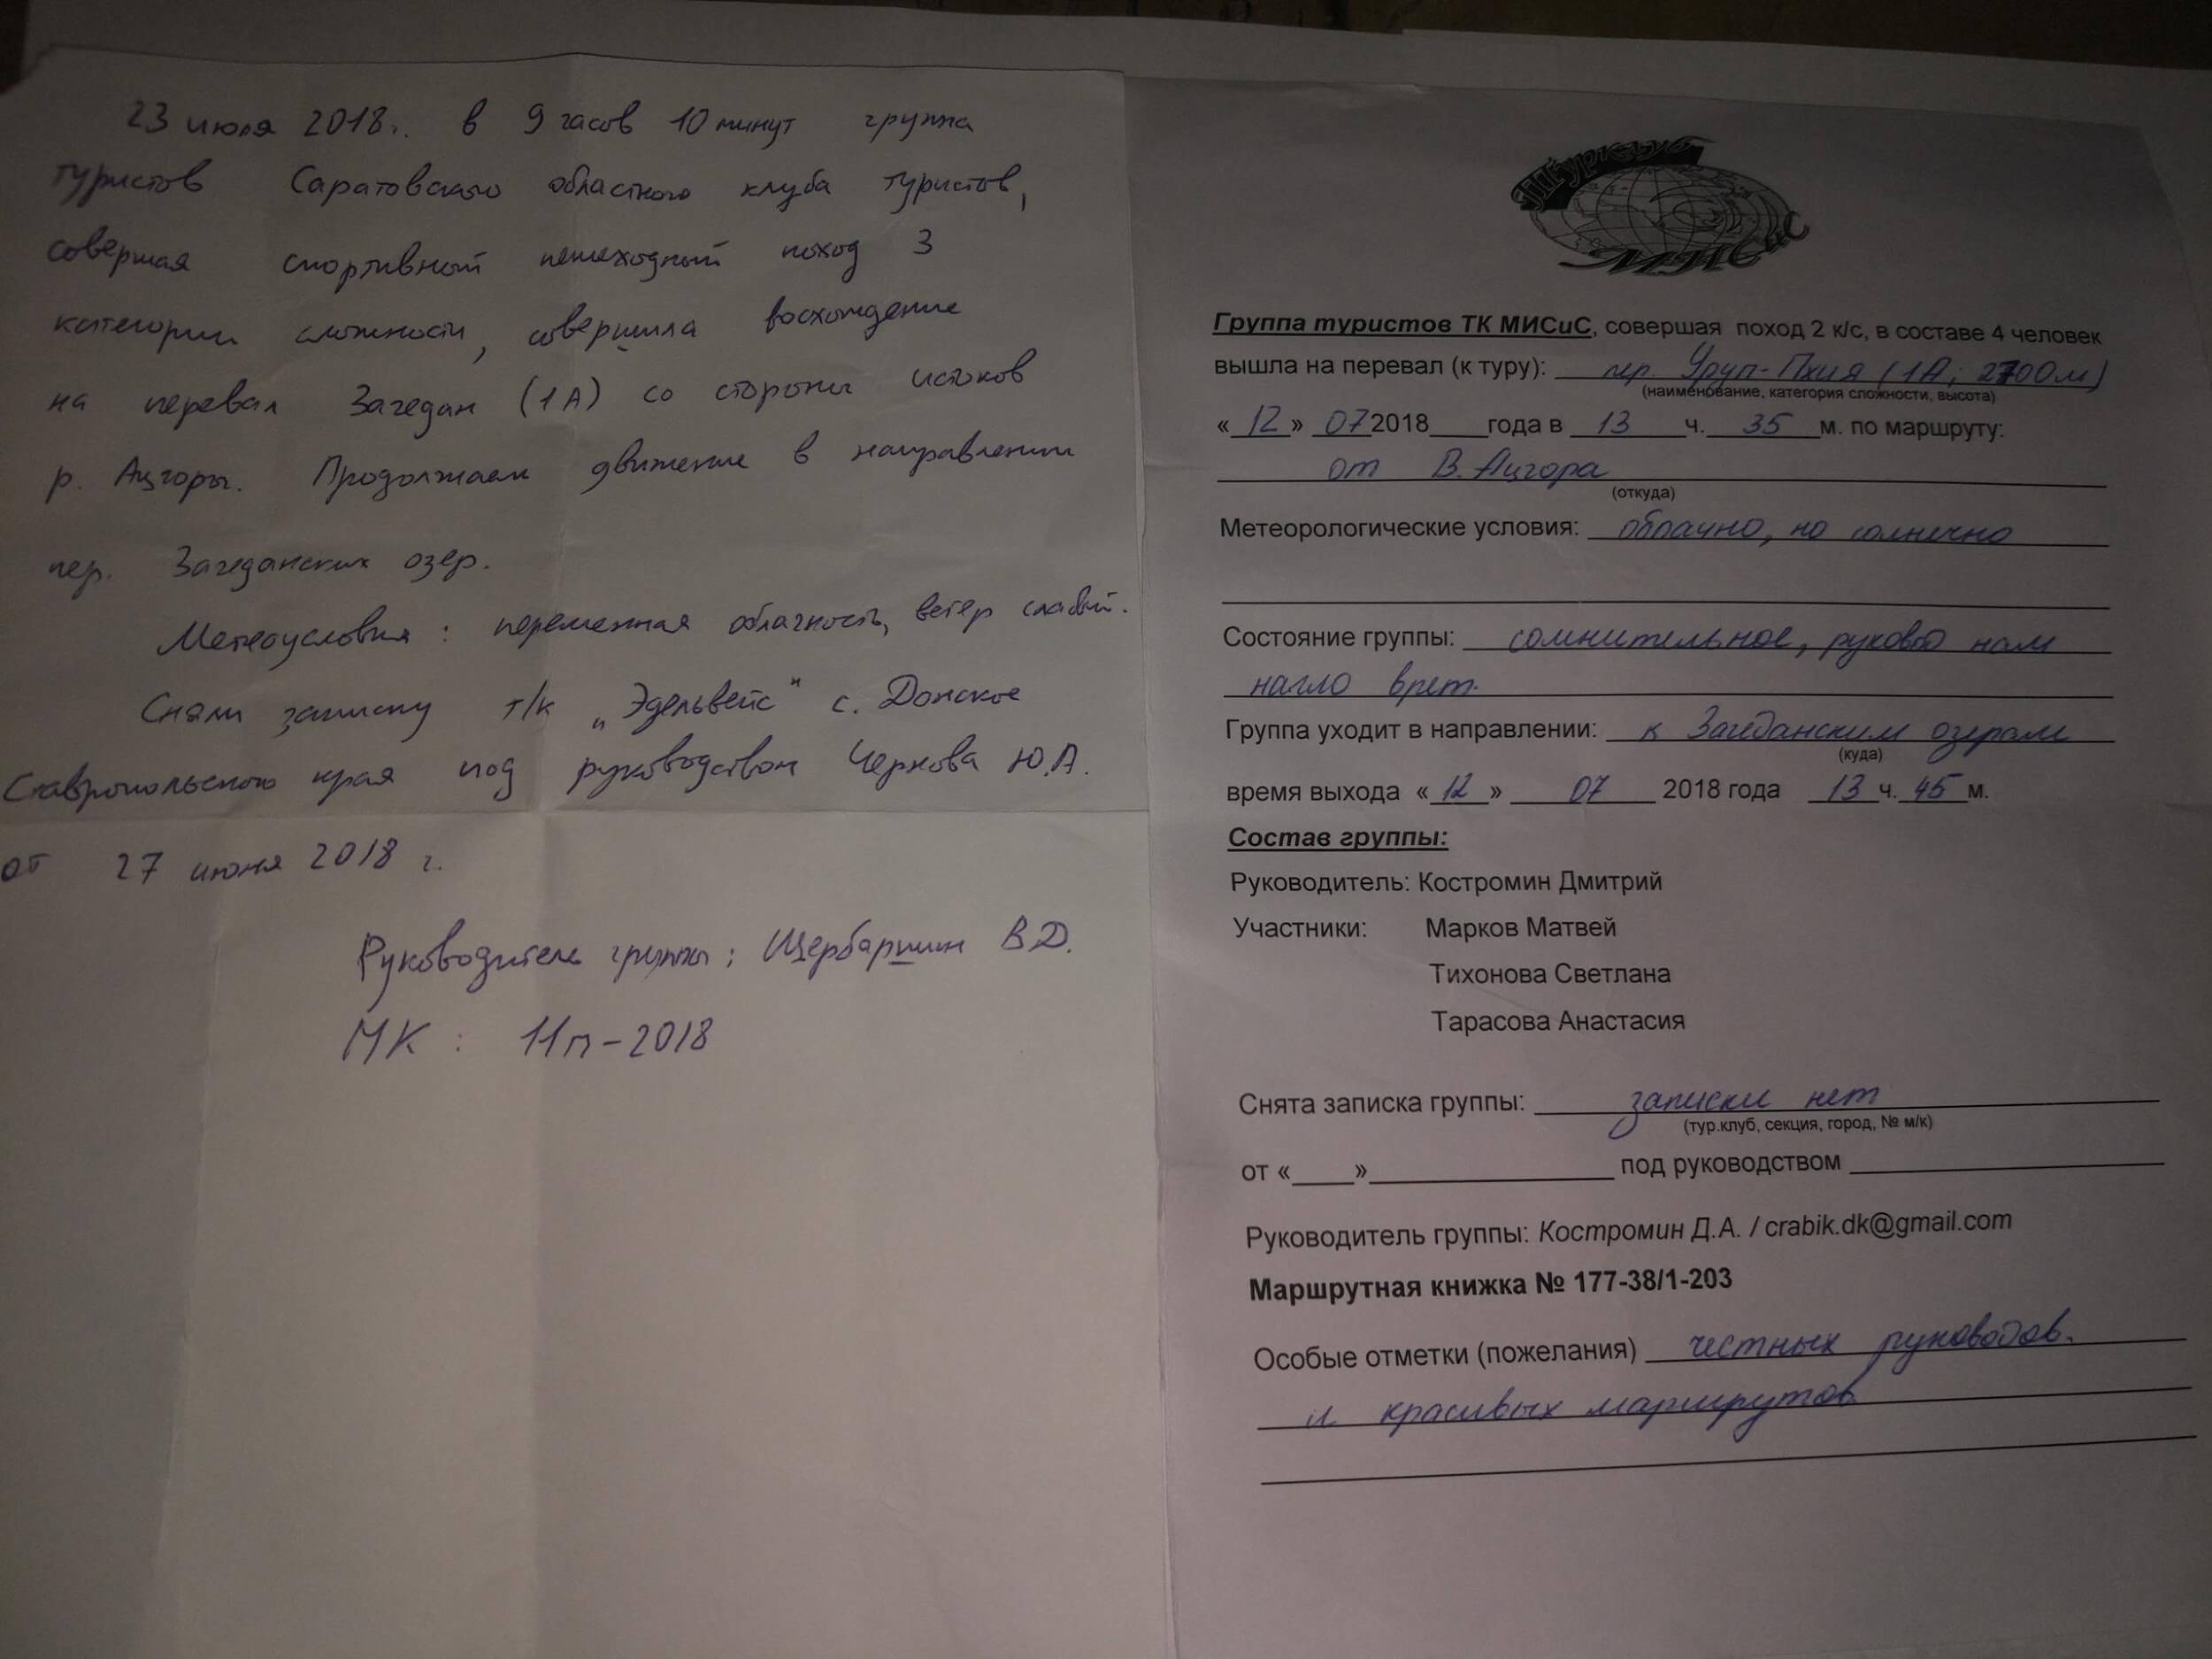 23 июля 2018г. в 9 часов 10 минут группа
туристов Саратовского областного клуба туристов,
совершая спортивный пешеходный поход 3
категории сложности, совершила восхождение
на перевал Загедан (1А) со стороны истоков
р. Ацгоры. Продолжаем движение в направлении
пер. Загеданских озер.
Метеоусловия: переменная облачность, ветер слабый.
Сняли записку т/к „Эдельвейс" с. Донское
Ставропольского края под руководством Чернова Ю.А.
от 27 июня 2018 г.
Руководитель группы: Щербаршин В Д.
МК: 11п-2018
Турклуб
МИСиС
Группа туристов ТК МИСиС, совершая поход 2 к/с, в составе 4 человек
вышла на перевал (к туру): пер. Уруп-Пхия (1А; 2700м)
(наименование, категория сложности, высота)
«12» 072018 года в 13 ч. 35 м. по маршруту:
от В. Ацгора
(откуда)
Метеорологические условия: облачно, но солнечно
Состояние группы: сомнительное, руковод нам
нагло врет.
Группа уходит в направлении: к Загеданским озерам
(куда)
время выхода «12» 07 2018 года 13 ч. 45 м.
Состав группы:
Руководитель: Костромин Дмитрий
Участники: Марков Матвей
Тихонова Светлана
Тарасова Анастасия
Снята записка группы: записки нет
(тур.клуб, секция, город, № м/к)
от «____»____________ под руководством ____________
Руководитель группы: Костромин Д.А. / crabik.dk@gmail.com
Маршрутная книжка № 177-38/1-203
Особые отметки (пожелания) честных руководов.
и красивых маршрутов